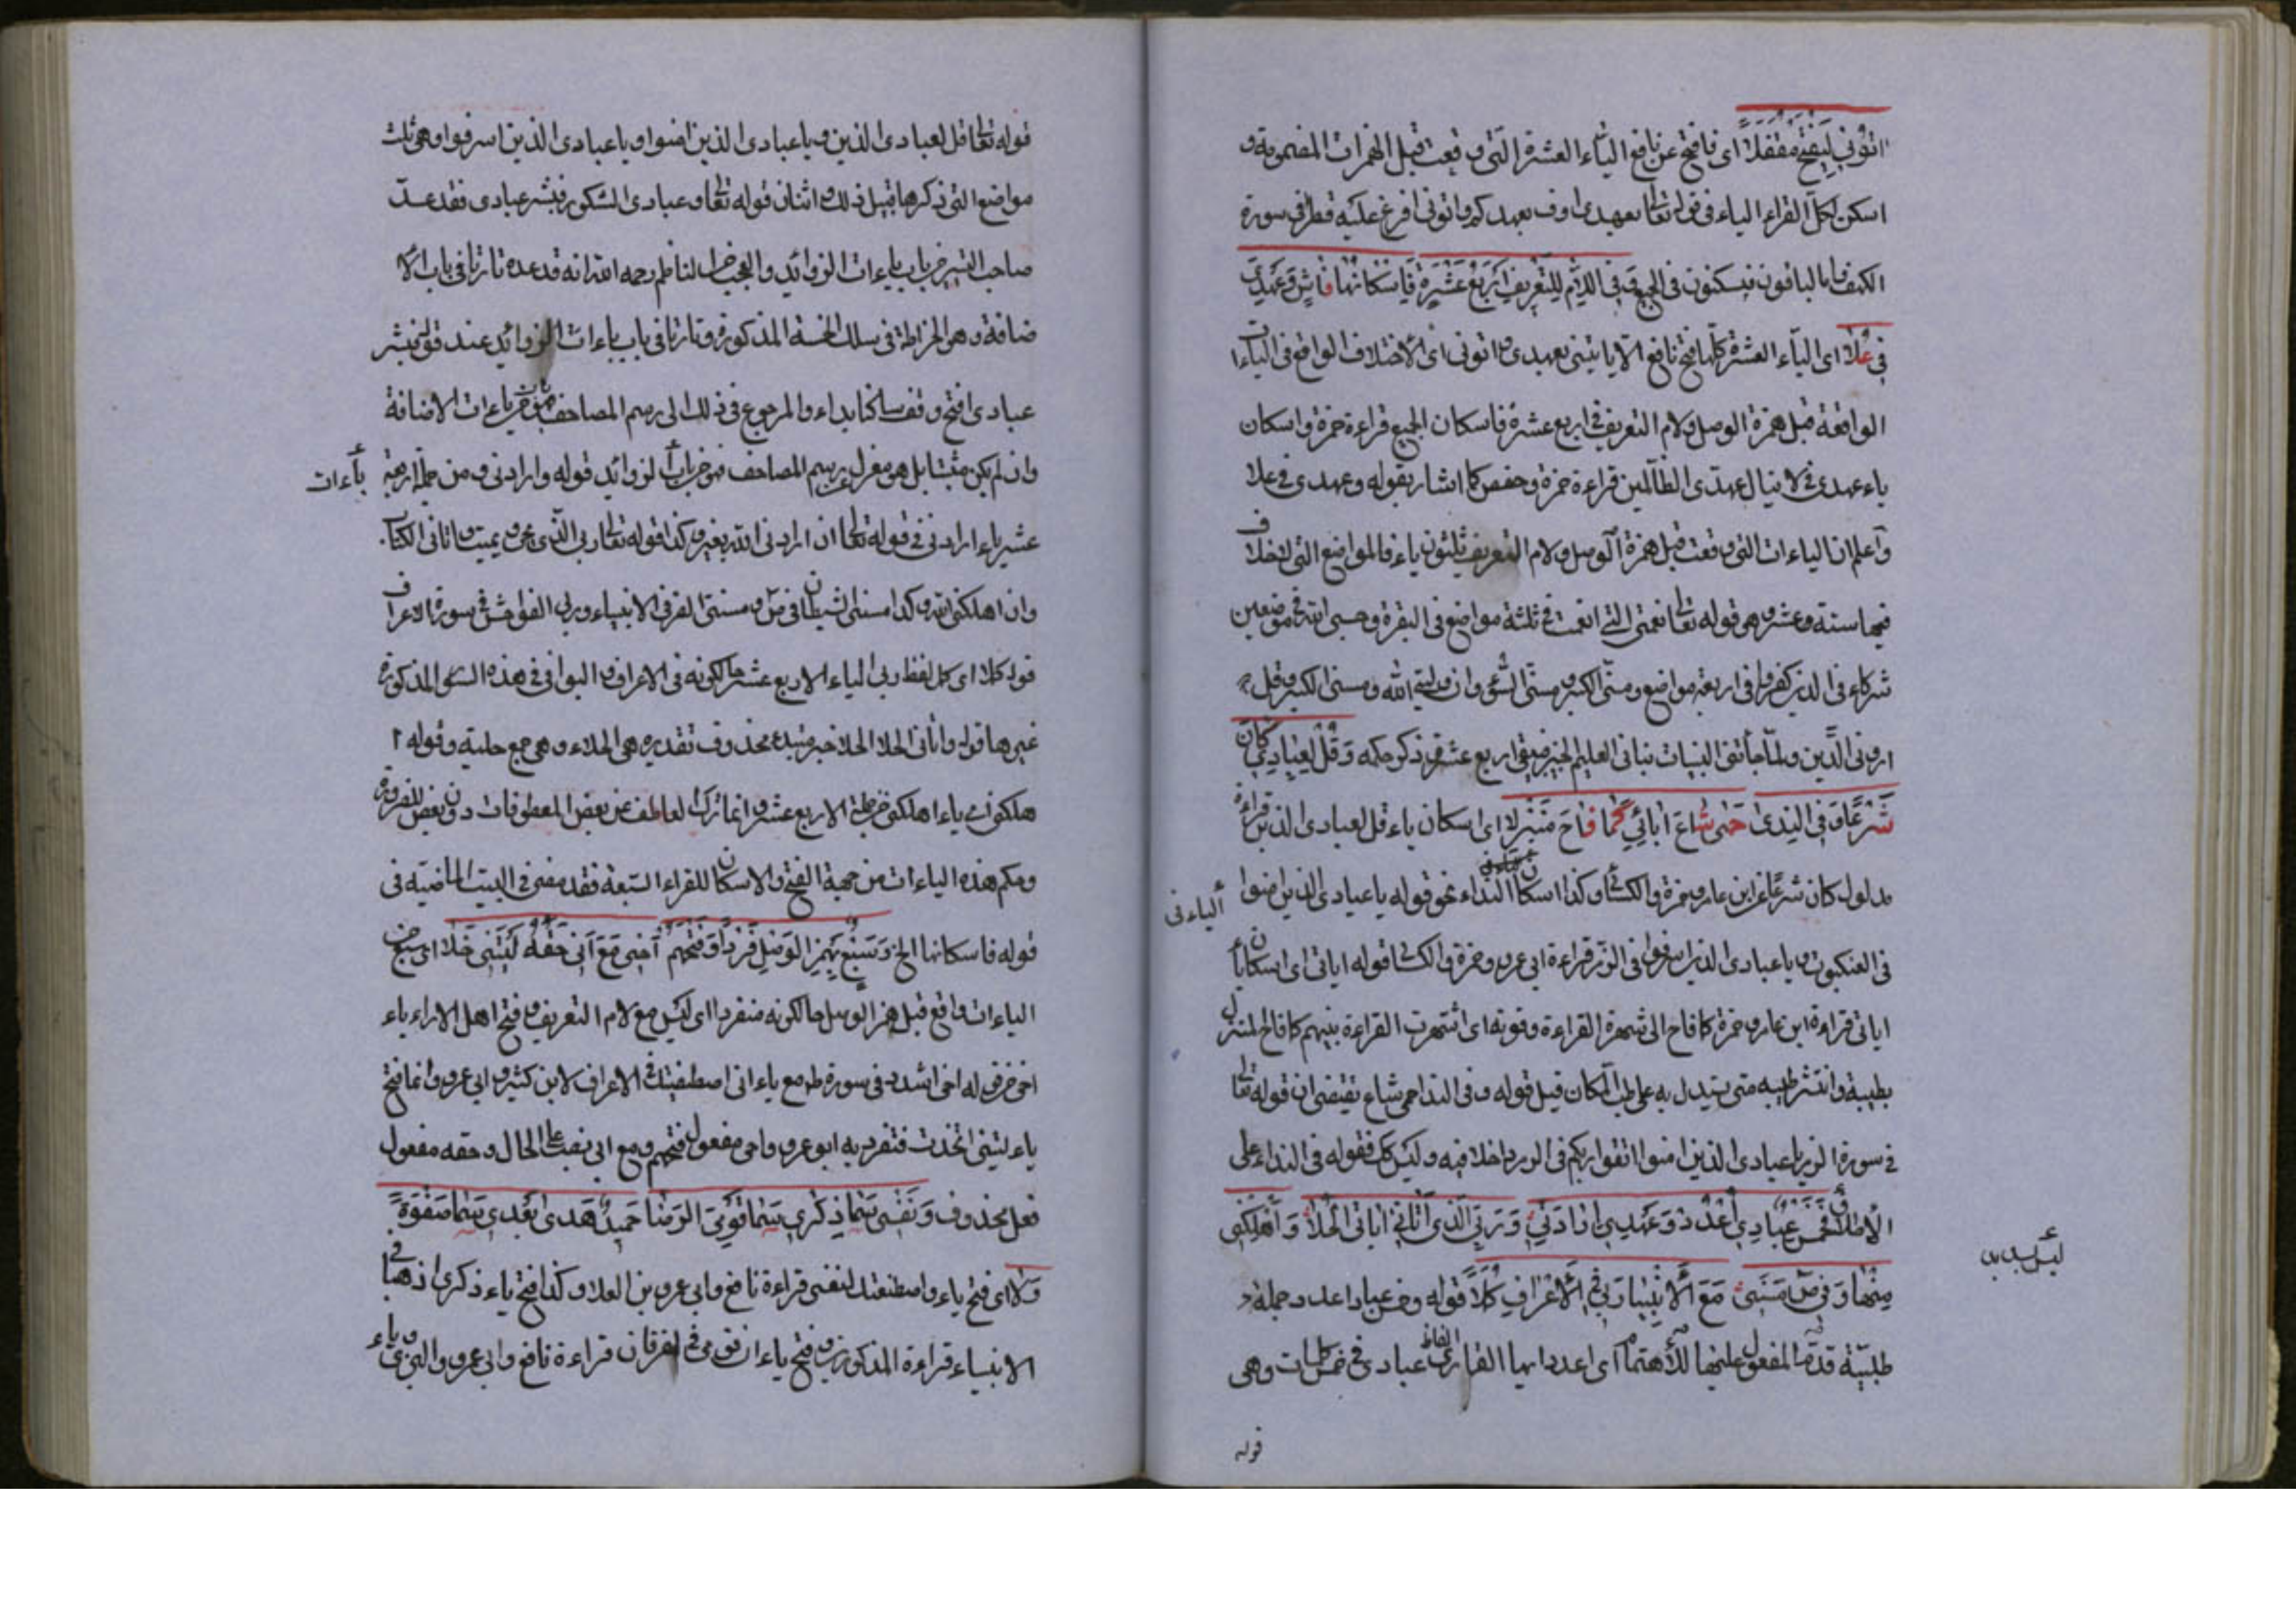 اتوني ليفتح مقفلا اى فافتح عن نافع الياء العشرة التى وقعت قبل الهمزات المضمومة و
اسكن لكل القراء الياء فى قوله تعالى بعهدى اوف بعهدكم واتونى افرغ عليه قطرا فى سورة
الكهف فالباقون يسكنون فى الجميع وَفِي اللَّامِ لِلتَّعْرِيفِ أَرْبَعُ عَشْرَةٍ فَإِسْكَانُهَا فَاشٍ وَعَهْدِيَ
فِي عُلَا اى الياء العشرة كلها فتح نافع الا يائين بعهدى واتونى اى الاختلاف الواقع فى الياءات
الواقعة قبل همزة الوصل ولام التعريف فى اربع عشرة فاسكان الجميع قراءة حمزة واسكان
ياء عهدى فى لا ينال عهدى الظالمين قراءة حمزة وحفص كما اشار بقوله وعهدى فى علا
واعلم ان الياءات التى وقعت قبل همزة الوصل ولام التعريف ثلثون ياء فالمواضع التى لا خلاف
فيها ستة وعشر وهى قوله تعالى نعمتى التى انعمت فى ثلثة مواضع فى البقرة وحسبى الله فى موضعين
شركاءى الذين فى اربعة مواضع ومسنى الكبر مسنى السوء وان وليى الله
ارونى الذين ولما جاءنى البينات نبأنى العليم الخبير فبقى اربع عشر ذكر حكمه وَقُلْ لِعِبَادِي كَانَ
شَرْعًا وَفِي النِّدَى حِمًى شَاعَ آيَاتِي كَمَا فَاحَ مَنْزِلَا اى اسكان ياء قل لعبادى الذين قراءة
مدلول كان شرعا عن ابن عامر وحمزة والكسائى وكذا اسكان النداء نحو قوله يا عبادى الذين امنوا
الياء فى
فى العنكبوت ويا عبادى الذين اسرفوا فى الزمر قراءة ابى عمرو وحمزة والكسائى قوله اياتى اى اسكان ياء
اياتى قراءة ابن عامر وحمزة كما فاح الى شهرة القراءة وقوته اى اشتهرت القراءة بينهم كما فاح المنزل
بطيبة وانتشر طيبه حتى يستدل به على طيب المكان قيل قوله وفى الندا حمى شاع يقتضى ان قوله تعالى
فى سورة الزمر يا عبادى الذين امنوا اتقوا ربكم فى الزمر داخلا فيه وليس كذلك فقوله فى النداء على
الاطلاق فَخَمْسَ عِبَادِي اعْدُدْ وَعَهْدِي أَرَادَنِي وَرَبِّي الَّذِي آتَانِ آيَاتِي الْحُلَا وَأَهْلَكَنِي
ليس بسديد
مِنْهَا وَفِي صَ مَسَّنِي مَعَ الْأَنْبِيَا رَبِّي فِي الْأَعْرَافِ كَمَّلَا قوله وخمس عبادى اعدد جملة
طلبية قدم المفعول عليها للاهتمام اى اعدد ايها القارئ الفاظ عبادى فى خمس كلمات وهى
قوله
قوله تعالى قل لعبادى الذين ويا عبادى الذين امنوا ويا عبادى الذين اسرفوا وهى ثلث
مواضع التى ذكرها قبيل ذلك واثنان قوله تعالى وعبادى الشكور فبشر عبادى فقد عد
صاحب التيسير من باب ياءات الزوائد والعجب من الناظم رحمه الله انه قد عده تارتا فى باب الا
ضافة وهو انخراطه فى سلك الخمسة المذكورة وتارتا فى باب ياءات الزوائد عند قوله فبشر
عبادى افتح وقف ساكنا يدا والمرجوع فى ذلك الى رسم المصاحف من ياءات الاضافة
وان لم يكن مثبتا بل هو معزل برسم المصاحف فهو من الزوائد قوله وارادنى ومن جملة اربعة
ياءات
عشر ياء ارادنى فى قوله تعالى ان ارادنى الله بضر وكذا قوله تعالى ربى الذى يحيى ويميت واتانى الكتاب
وان اهلكنى الله وكذا مسنى الشيطان فى ص ومسنى الضر فى الانبياء وربى الفواحش فى سورة الاعراف
قوله كملا اى كمل لفظ ربى الياء الاربع عشر حال كونه فى الاعراف والبواقى فى هذه السور المذكورة
غيرها قوله واتانى الحلا الحلا خبر مبتدء محذوف تقديره هى الحلاء وهى جمع حلية وقوله ا
هلكنى اى ياء اهلكنى من جملة الاربع عشر وانما ترك العاطف عن بعض المعطوفات دون بعض للضرورة
وحكم هذه الياءات من جهة الفتح والاسكان للقراء السبعة فقد مضى فى البيت الماضية فى
قوله فاسكانها الخ وَسَبْعٌ بِهَمْزِ الْوَصْلِ فَرْدًا وَفَتْحُهُمْ أَخِي مَعَ إِنِّي حَقُّهُ لَيْتَنِي حَلَا اى سبع من
الياءات واقع قبل همز الوصل حال كونه منفردا اى ليس مع لام التعريف وفتح اهل الاراء ياء
اخى من قوله اخى اشدد فى سورة طه مع ياء انى اصطفيتك فى الاعراف لابن كثير وابى عمرو وانما فتح
ياء ليتنى اتخذت فتفرد به ابو عمرو واخى مفعول فتحهم ومع انى نصب على الحال وحقه مفعول
فعل محذوف وَنَفْسِي سَمَا ذِكْرِي سَمَا قَوْمِيَ الرِّضَا حَمِيدُ هُدًى بَعْدِي سَمَا صَفْوُهُ
وِلَا اى فتح ياء واصطنعتك لنفسى قراءة نافع وابى عمرو بن العلا وكذا فتح ياء ذكرى اذهبا فى
الانبياء قراءة المذكورين وفتح ياء ان قومى فى الفرقان قراءة نافع وابى عمرو والبزى وياء